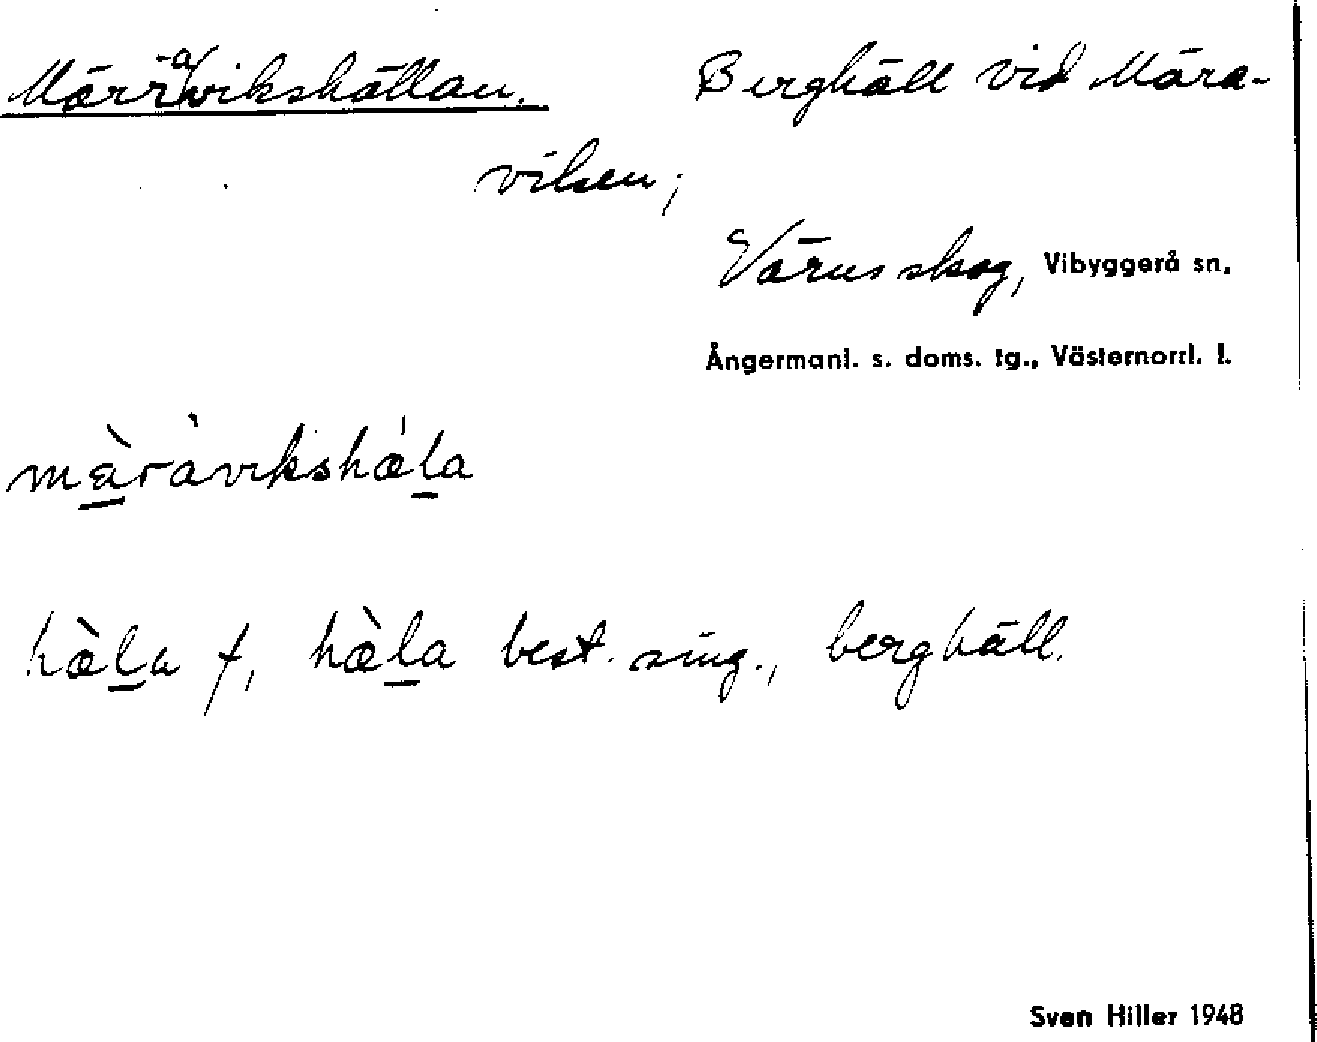 Märravikshällan. Berghäll vid Mära-
viken;
Värns skog, Vibyggerå sn,
Ångermanl. s. doms. tg., Västernorrl. l.
mæ̀ràvikshæ̀la
hæ̀la f, hæ̀la best. sing., berghäll.
Sven Hiller 1948